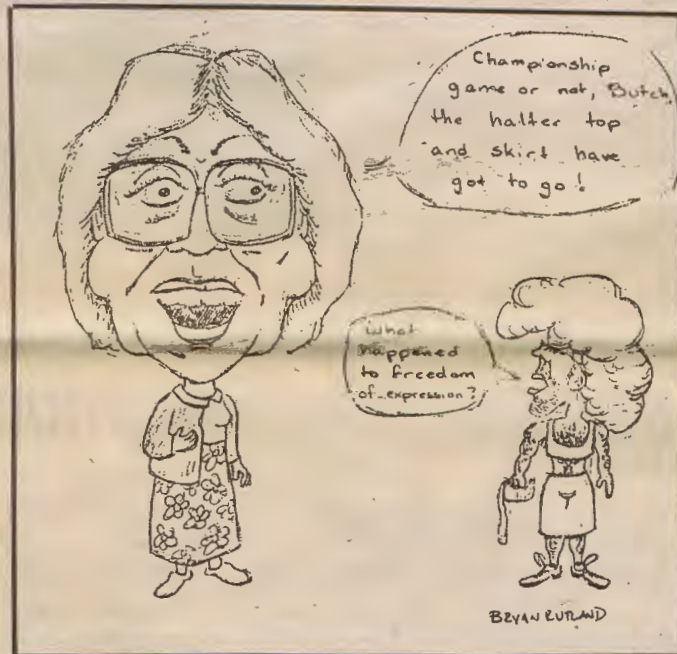 Championship
game or not, Butch,
the halter top
and skirt have
got to go!
What
happened
to freedom
of expression?
BRYAN RUTLAND